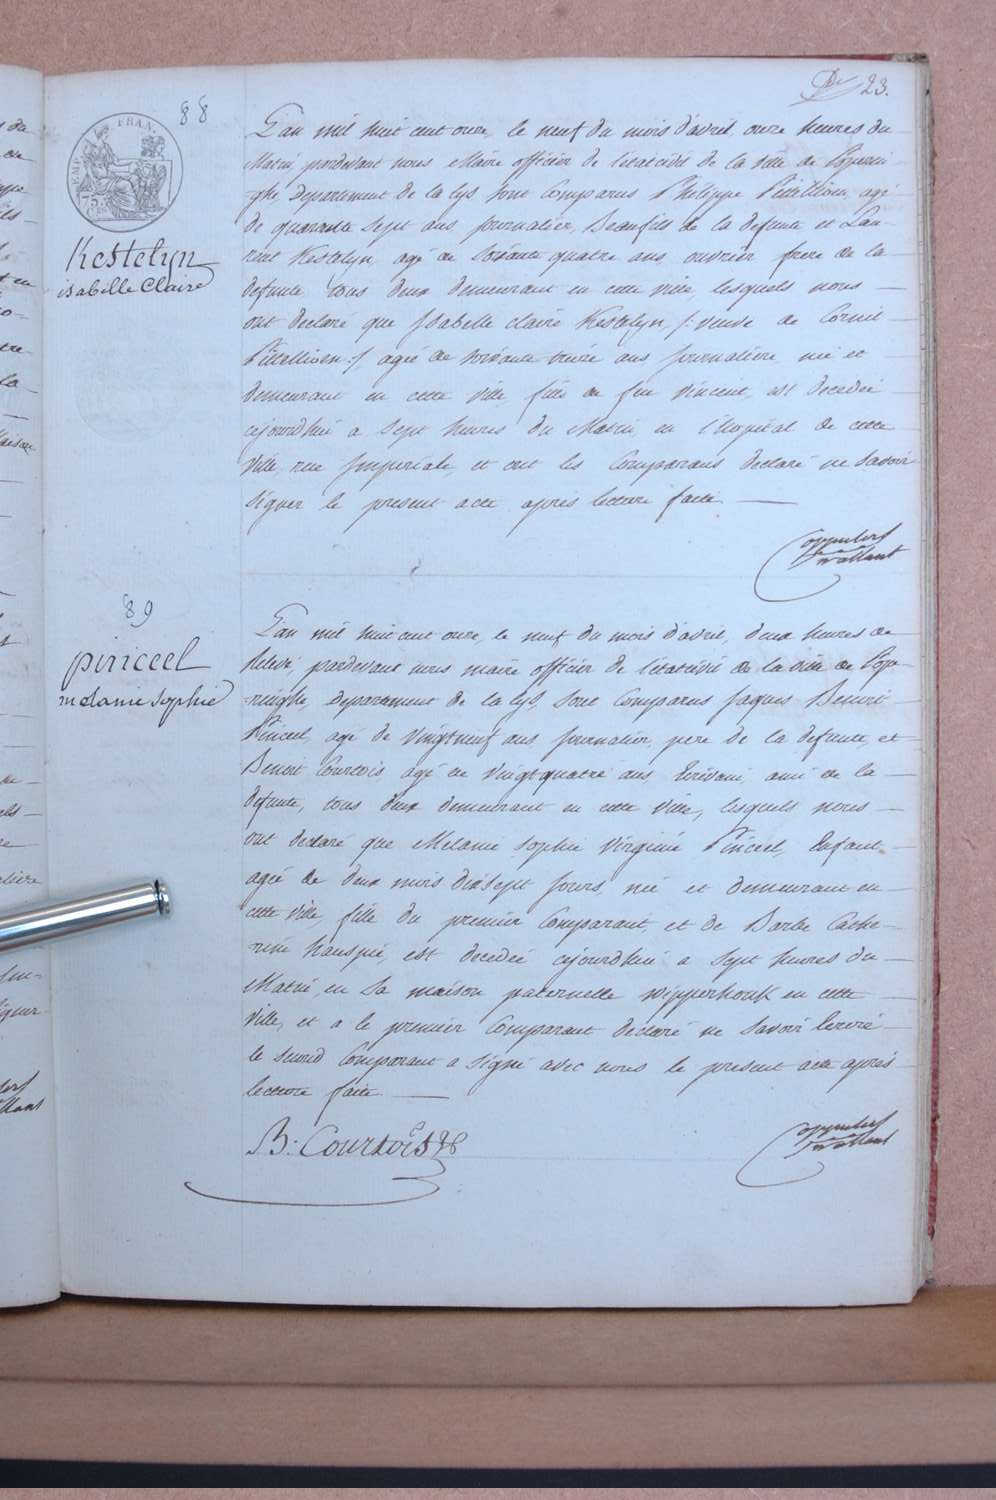 23.
EMP. FRAN.
75 c.
88
Kestelyn
isabelle Claire
L'an mil huit cent onze, le neuf du mois d'avril, onze heures du
Matin, pardevant nous Maire officier de l'étatcivil de la ville de Poperin-
-ghe, Departement de la Lys, sont Comparus Philippe Pittellioen, agé
de quarante sept ans Journalier, Beaufils de la defunte et Lau-
rent Kestelyn, agé de soixante quatre ans, ouvrier frere de la
defunte, tous deux demeurant en cette ville, lesquels nous
ont declaré que Isabelle Claire Kestelyn, /: veuve de Cornil
Pittellioen :/, agée de soixante ans Journaliere, née et
demeurant en cette ville, fille de feu Vincent, est decedée
cejourd'hui a sept heures du Matin, en l'hopital de cette
ville, rue Imperiale, et ont les Comparans declaré ne savoir
signer le present acte après lecture faite.
89
pinceel
melanie sophie
L'an mil huit cent onze, le neuf du mois d'avril, deux heures de
relevé, pardevant nous maire officier de l'étatcivil de la ville de Pope-
-ringhe, departement de la Lys, sont Comparus Jaques Benoit
Pinceel, agé de vingtneuf ans Journalier, pere de la defunte, et
Benoit Courtois, agé de vingtquatre ans, Ecrivain, ami de la
defunte, tous deux demeurant en cette ville, lesquels nous
ont declaré que Melanie Sophie Virginie Pinceel, Enfant
agée de deux mois dixsept jours, née et demeurant en
cette ville, fille du premier Comparant, et de Barbe Cathe-
rine hauspie, est decedée cejourd'hui a sept heures du
Matin, en sa maison paternelle wipperhouk en cette
ville, et a le premier Comparant declaré ne savoir Ecrire
le second Comparant a signé avec nous le present acte après
lecture faite.
B: Courtois